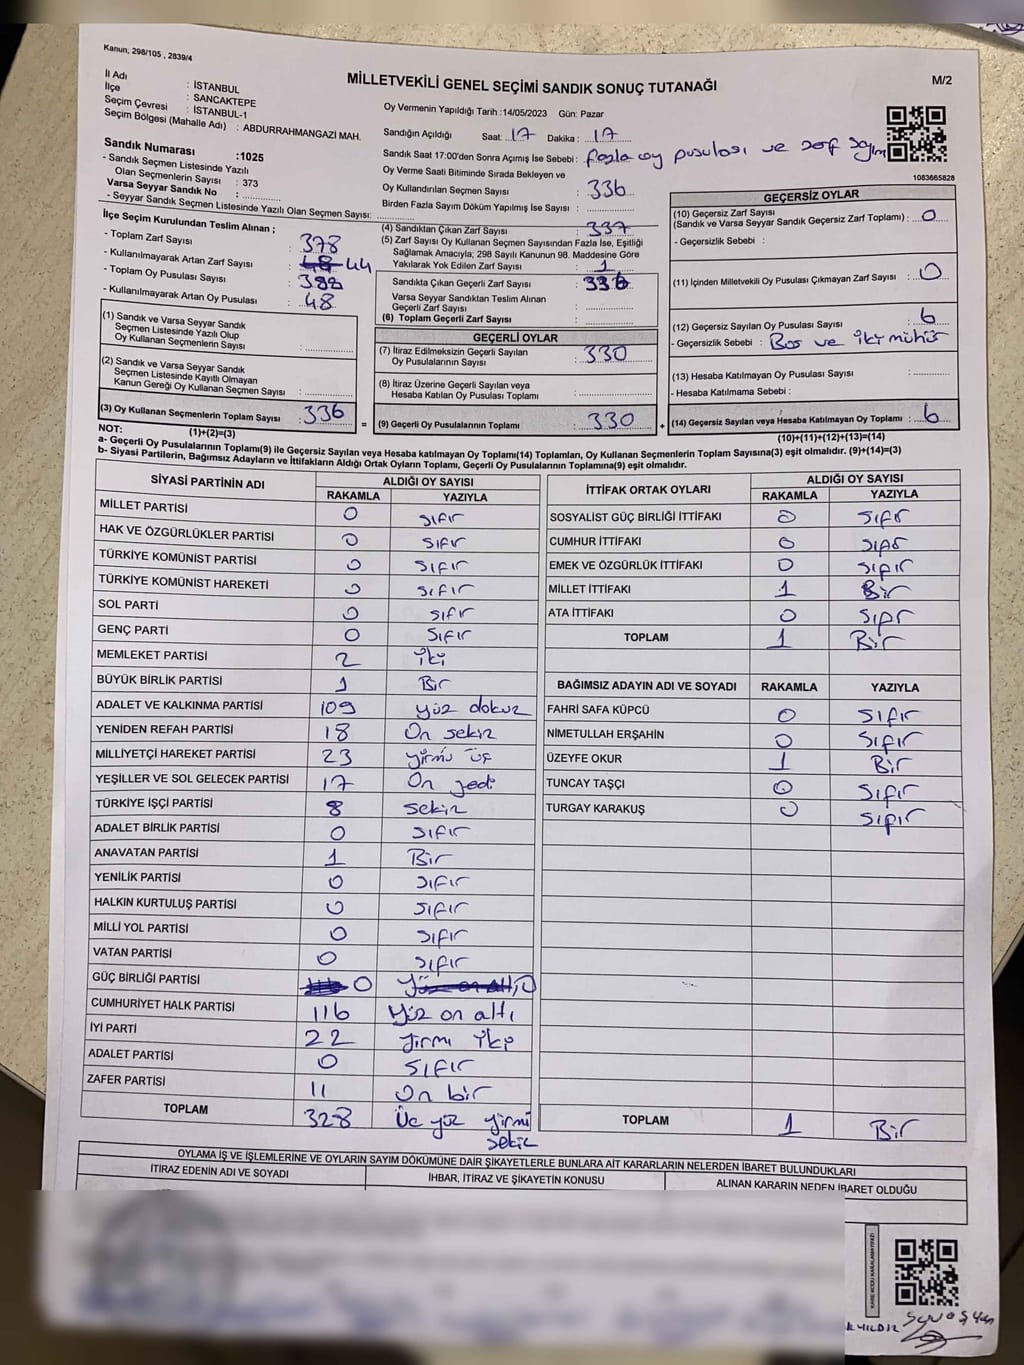 Kanun, 298/105 , 2839/4
MİLLETVEKİLİ GENEL SEÇİMİ SANDIK SONUÇ TUTANAĞI
M/2
İl Adı : İSTANBUL
İlçe : SANCAKTEPE
Seçim Çevresi : İSTANBUL-1
Seçim Bölgesi (Mahalle Adı) : ABDURRAHMANGAZİ MAH.
Sandık Numarası :1025
- Sandık Seçmen Listesinde Yazılı
Olan Seçmenlerin Sayısı : 373
Varsa Seyyar Sandık No :
- Seyyar Sandık Seçmen Listesinde Yazılı Olan Seçmen Sayısı:
Oy Vermenin Yapıldığı Tarih :14/05/2023 Gün: Pazar
Sandığın Açıldığı Saat: 17 Dakika : 17
Sandık Saat 17:00'den Sonra Açımış İse Sebebi : fazla oy pusulası ve zarf sayım
Oy Verme Saati Bitiminde Sırada Bekleyen ve
Oy Kullandırılan Seçmen Sayısı : 336
Birden Fazla Sayım Döküm Yapılmış İse Sayısı :
1083665828
İlçe Seçim Kurulundan Teslim Alınan ;
- Toplam Zarf Sayısı : 378
- Kullanılmayarak Artan Zarf Sayısı : 48 44
- Toplam Oy Pusulası Sayısı : 382
- Kullanılmayarak Artan Oy Pusulası : 48
(1) Sandık ve Varsa Seyyar Sandık
Seçmen Listesinde Yazılı Olup
Oy Kullanan Seçmenlerin Sayısı :
(2) Sandık ve Varsa Seyyar Sandık
Seçmen Listesinde Kayıtlı Olmayan
Kanun Gereği Oy Kullanan Seçmen Sayısı :
(3) Oy Kullanan Seçmenlerin Toplam Sayısı : 336
(1)+(2)=(3)
(4) Sandıktan Çıkan Zarf Sayısı : 337
(5) Zarf Sayısı Oy Kullanan Seçmen Sayısından Fazla İse, Eşitliği
Sağlamak Amacıyla; 298 Sayılı Kanunun 98. Maddesine Göre
Yakılarak Yok Edilen Zarf Sayısı : 1
Sandıkta Çıkan Geçerli Zarf Sayısı : 336
Varsa Seyyar Sandıktan Teslim Alınan
Geçerli Zarf Sayısı :
(6) Toplam Geçerli Zarf Sayısı :
GEÇERLİ OYLAR
(7) İtiraz Edilmeksizin Geçerli Sayılan
Oy Pusulalarının Sayısı : 330
(8) İtiraz Üzerine Geçerli Sayılan veya
Hesaba Katılan Oy Pusulası Toplamı :
= (9) Geçerli Oy Pusulalarının Toplamı : 330
GEÇERSİZ OYLAR
(10) Geçersiz Zarf Sayısı
(Sandık ve Varsa Seyyar Sandık Geçersiz Zarf Toplamı) : 0
- Geçersizlik Sebebi :
(11) İçinden Milletvekili Oy Pusulası Çıkmayan Zarf Sayısı : 0
(12) Geçersiz Sayılan Oy Pusulası Sayısı : 6
- Geçersizlik Sebebi : Boş ve iki mühür
(13) Hesaba Katılmayan Oy Pusulası Sayısı :
- Hesaba Katılmama Sebebi :
+ (14) Geçersiz Sayılan veya Hesaba Katılmayan Oy Toplamı : 6
(10)+(11)+(12)+(13)=(14)
NOT:
a- Geçerli Oy Pusulalarının Toplamı(9) ile Geçersiz Sayılan veya Hesaba katılmayan Oy Toplamı(14) Toplamları, Oy Kullanan Seçmenlerin Toplam Sayısına(3) eşit olmalıdır. (9)+(14)=(3)
b- Siyasi Partilerin, Bağımsız Adayların ve İttifakların Aldığı Ortak Oyların Toplamı, Geçerli Oy Pusulalarının Toplamına(9) eşit olmalıdır.
SİYASİ PARTİNİN ADI ALDIĞI OY SAYISI
RAKAMLA YAZIYLA
MİLLET PARTİSİ 0 sıfır
HAK VE ÖZGÜRLÜKLER PARTİSİ 0 sıfır
TÜRKİYE KOMÜNİST PARTİSİ 0 sıfır
TÜRKİYE KOMÜNİST HAREKETİ 0 sıfır
SOL PARTİ 0 sıfır
GENÇ PARTİ 0 sıfır
MEMLEKET PARTİSİ 2 iki
BÜYÜK BİRLİK PARTİSİ 1 Bir
ADALET VE KALKINMA PARTİSİ 109 yüz dokuz
YENİDEN REFAH PARTİSİ 18 On sekiz
MİLLİYETÇİ HAREKET PARTİSİ 23 yirmi üç
YEŞİLLER VE SOL GELECEK PARTİSİ 17 On yedi
TÜRKİYE İŞÇİ PARTİSİ 8 sekiz
ADALET BİRLİK PARTİSİ 0 sıfır
ANAVATAN PARTİSİ 1 Bir
YENİLİK PARTİSİ 0 sıfır
HALKIN KURTULUŞ PARTİSİ 0 sıfır
MİLLİ YOL PARTİSİ 0 sıfır
VATAN PARTİSİ 0 sıfır
GÜÇ BİRLİĞİ PARTİSİ 0 Yüz on altı 0
CUMHURİYET HALK PARTİSİ 116 Yüz on altı
İYİ PARTİ 22 yirmi iki
ADALET PARTİSİ 0 sıfır
ZAFER PARTİSİ 11 On bir
TOPLAM 328 Üç yüz yirmi
sekiz
İTTİFAK ORTAK OYLARI ALDIĞI OY SAYISI
RAKAMLA YAZIYLA
SOSYALİST GÜÇ BİRLİĞİ İTTİFAKI 0 sıfır
CUMHUR İTTİFAKI 0 sıfır
EMEK VE ÖZGÜRLÜK İTTİFAKI 0 sıfır
MİLLET İTTİFAKI 1 Bir
ATA İTTİFAKI 0 sıfır
TOPLAM 1 Bir
BAĞIMSIZ ADAYIN ADI VE SOYADI RAKAMLA YAZIYLA
FAHRİ SAFA KÜPCÜ 0 sıfır
NİMETULLAH ERŞAHİN 0 sıfır
ÜZEYFE OKUR 1 Bir
TUNCAY TAŞÇI 0 sıfır
TURGAY KARAKUŞ 0 sıfır
TOPLAM 1 Bir
OYLAMA İŞ VE İŞLEMLERİNE VE OYLARIN SAYIM DÖKÜMÜNE DAİR ŞİKAYETLERLE BUNLARA AİT KARARLARIN NELERDEN İBARET BULUNDUKLARI
İTİRAZ EDENİN ADI VE SOYADI İHBAR, İTİRAZ VE ŞİKAYETİN KONUSU ALINAN KARARIN NEDEN İBARET OLDUĞU
KARE KODU KARALAMAYINIZ!